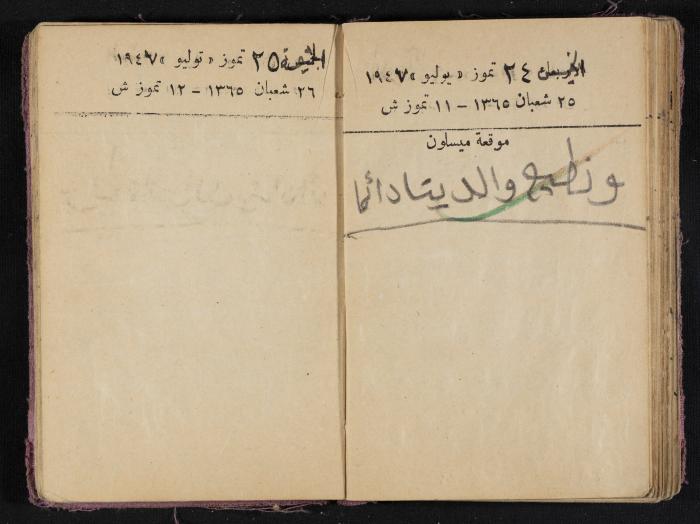 الخميس ٢٤ تموز « يوليو » ١٩٤٧
٢٥ شعبان ١٣٦٥ – ١١ تموز ش
موقعة ميسلون
ونطيع والدينا دائما
الجمعة ٢٥ تموز « توليو » ١٩٤٧
٢٦ شعبان ١٣٦٥ – ١٢ تموز ش